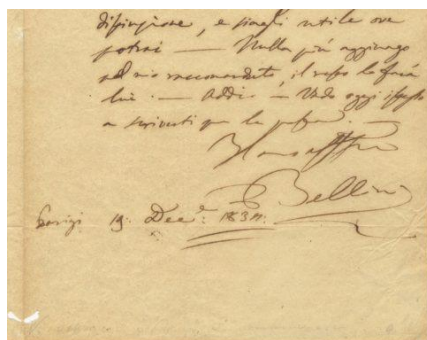 disposizione, e siagli utile ove
potrai — Nulla più aggiungo
al mio raccomandato, il resto lo farà
lui — Addio — Vado oggi
a scriverti per la
Il tuo
Bellini
Parigi 19. Dec.e 1834.